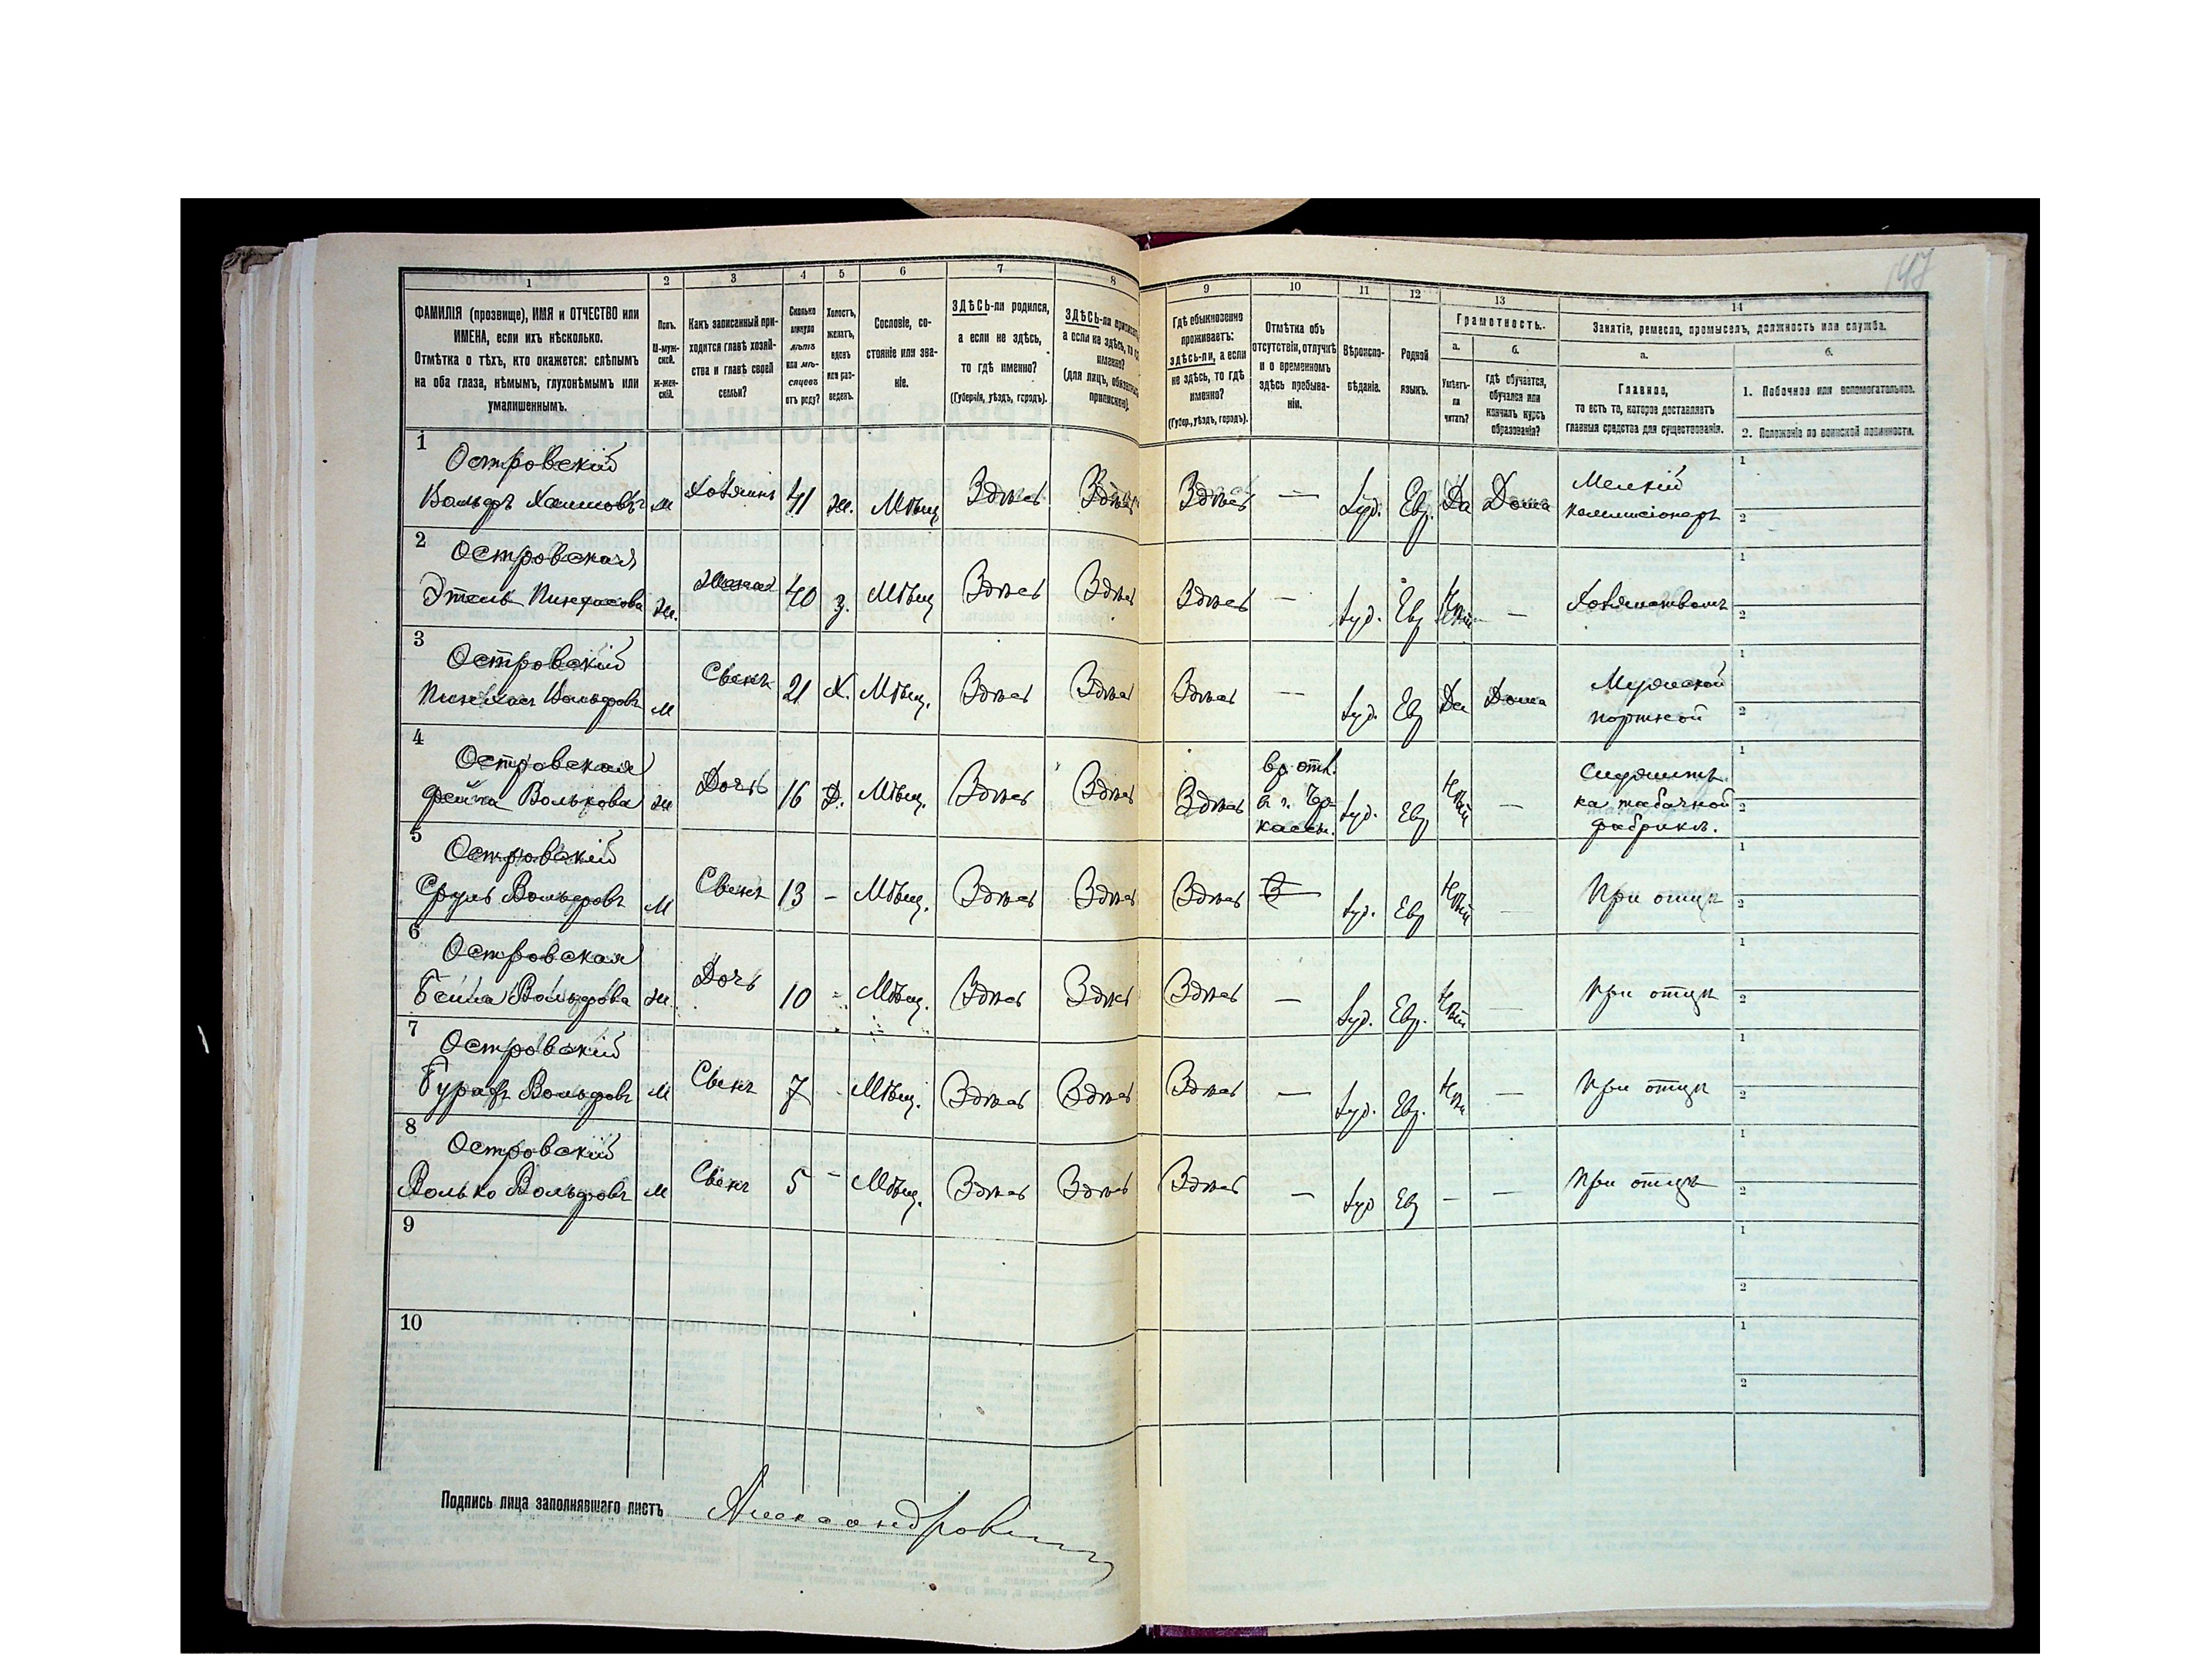 47
1
2
3
4
5
6
7
8
9
10
11
12
13
14
ФАМИЛІЯ (прозвище), ИМЯ и ОТЧЕСТВО или
ИМЕНА, если ихъ нѣсколько.
Отмѣтка о тѣхъ, кто окажется: слѣпымъ
на оба глаза, нѣмымъ, глухонѣмымъ или
умалишеннымъ.
Полъ.
М-муж-
ской.
ж-жен-
скій.
Какъ записанный при-
ходится главѣ хозяй-
ства и главѣ своей
семьи?
Сколько
минуло
лѣтъ
или мѣ-
сяцевъ
отъ роду?
Холостъ,
женатъ,
вдовъ
или раз-
веденъ.
Сословіе, со-
стояніе или зва-
ніе.
ЗДѢСЬ-ли родился,
а если не здѣсь,
то гдѣ именно?
(Губернія, уѣздъ, городъ).
ЗДѢСЬ-ли
а если не здѣсь, то
именно?
(для лицъ,
Гдѣ обыкновенно
проживаетъ:
здѣсь-ли, а если
не здѣсь, то гдѣ
именно?
(Губер., уѣздъ, городъ).
Отмѣтка объ
отсутствіи, отлучкѣ
и о временномъ
здѣсь пребыва-
ніи.
Вѣроиспо-
вѣданіе.
Родной
языкъ.
Грамотность.
а.
Умѣетъ-
ли
читать?
б.
гдѣ обучается,
обучался или
кончилъ курсъ
образованія?
Занятіе, ремесло, промыселъ, должность или служба.
а.
Главное,
то есть то, которое доставляетъ
главныя средства для существованія.
б.
1. Побочное или вспомогательное.
2. Положеніе по воинской повинности.
1
Островскій
Вольфъ Хаимовъ м Хозяинъ 41 ж. Мѣщ Здѣсь Здѣсь Здѣсь — Іуд. Евр. Да Дома Мелкій
коммисіонеръ
1
2
2
Островская
Этель Пинхасова ж. Жена 40 з. Мѣщ Здѣсь Здѣсь Здѣсь — Іуд. Евр — Хозяйствомъ
1
2
3
Островскій
Пинхасъ Вольфовъ м Сынъ 21 Х. Мѣщ. Здѣсь Здѣсь Здѣсь — Іуд. Евр Да Дома Мужской
портной
1
2
4
Островская
Фейга Волькова ж Дочь 16 Д. Мѣщ. Здѣсь Здѣсь Здѣсь вр. отл.
в г. Чер-
кассы. Іуд. Евр Нѣтъ —
табачной
фабрикѣ.
1
2
5
Островскій
Сруль Вольфовъ м Сынъ 13 - Мѣщ. Здѣсь Здѣсь Здѣсь — Іуд. Евр Нѣтъ — При отцѣ
1
2
6
Островская
Бейла Вольфова ж. Дочь 10 - Мѣщ. Здѣсь Здѣсь Здѣсь — Іуд. Евр. Нѣтъ — При отцѣ
1
2
7
Островскій
Вольфовъ м Сынъ 7 - Мѣщ. Здѣсь Здѣсь Здѣсь — Іуд. Евр. Нѣтъ — При отцѣ
1
2
8
Островскій
Волько Вольфовъ м Сынъ 5 - Мѣщ. Здѣсь Здѣсь Здѣсь — Іуд Евр — — При отцѣ
1
2
9
1
2
10
1
2
Подпись лица заполнявшаго листъ